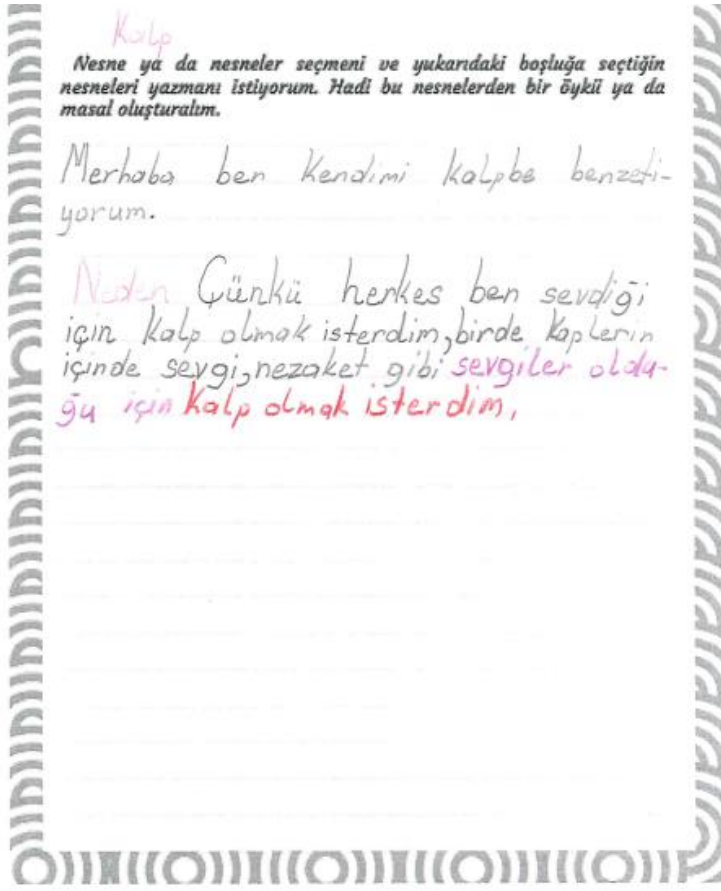 Kalp
Nesne ya da nesneler seçmeni ve yukarıdaki boşluğa seçtiğin
nesneleri yazmanı istiyorum. Hadi bu nesnelerden bir öykü ya da
masal oluşturalım.
Merhaba ben Kendimi kalpbe benzeti-
yorum.
Neden Çünkü herkes ben sevdiği
için Kalp olmak isterdim, birde Kaplerin
içinde sevgi, nezaket gibi sevgiler oldu-
ğu için Kalp olmak isterdim,